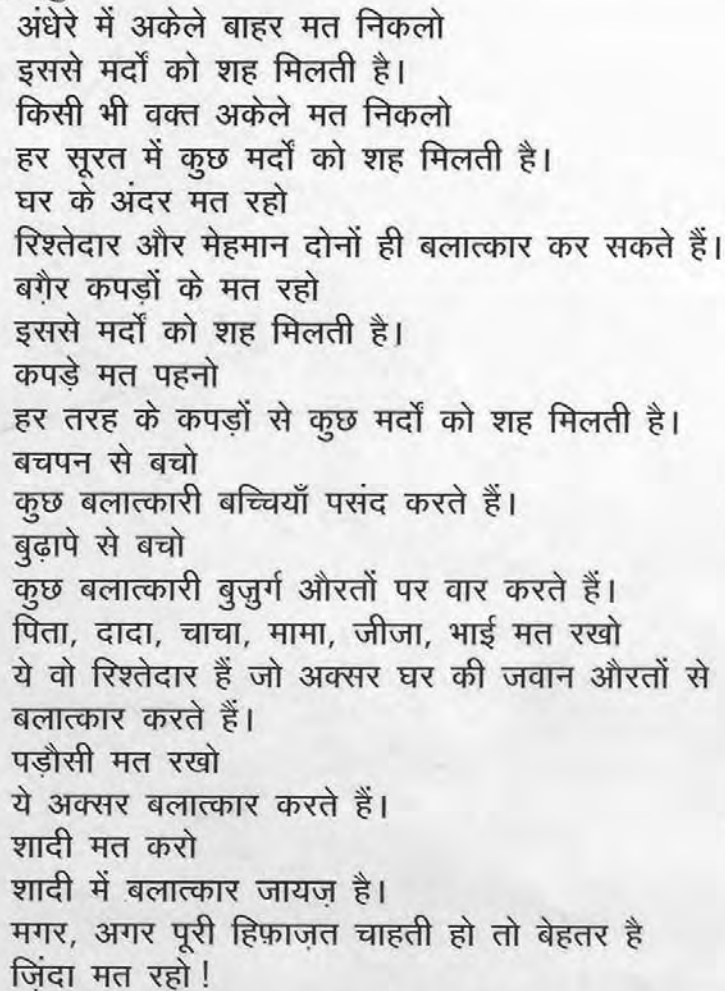 अंधेरे में अकेले बाहर मत निकलो
इससे मर्दों को शह मिलती है।
किसी भी वक्त अकेले मत निकलो
हर सूरत में कुछ मर्दों को शह मिलती है।
घर के अंदर मत रहो
रिश्तेदार और मेहमान दोनों ही बलात्कार कर सकते हैं।
बग़ैर कपड़ों के मत रहो
इससे मर्दों को शह मिलती है।
कपड़े मत पहनो
हर तरह के कपड़ों से कुछ मर्दों को शह मिलती है।
बचपन से बचो
कुछ बलात्कारी बच्चियाँ पसंद करते हैं।
बुढ़ापे से बचो
कुछ बलात्कारी बुज़ुर्ग औरतों पर वार करते हैं।
पिता, दादा, चाचा, मामा, जीजा, भाई मत रखो
ये वो रिश्तेदार हैं जो अक्सर घर की जवान औरतों से
बलात्कार करते हैं।
पड़ौसी मत रखो
ये अक्सर बलात्कार करते हैं।
शादी मत करो
शादी में बलात्कार जायज़ है।
मगर, अगर पूरी हिफ़ाज़त चाहती हो तो बेहतर है
ज़िंदा मत रहो!